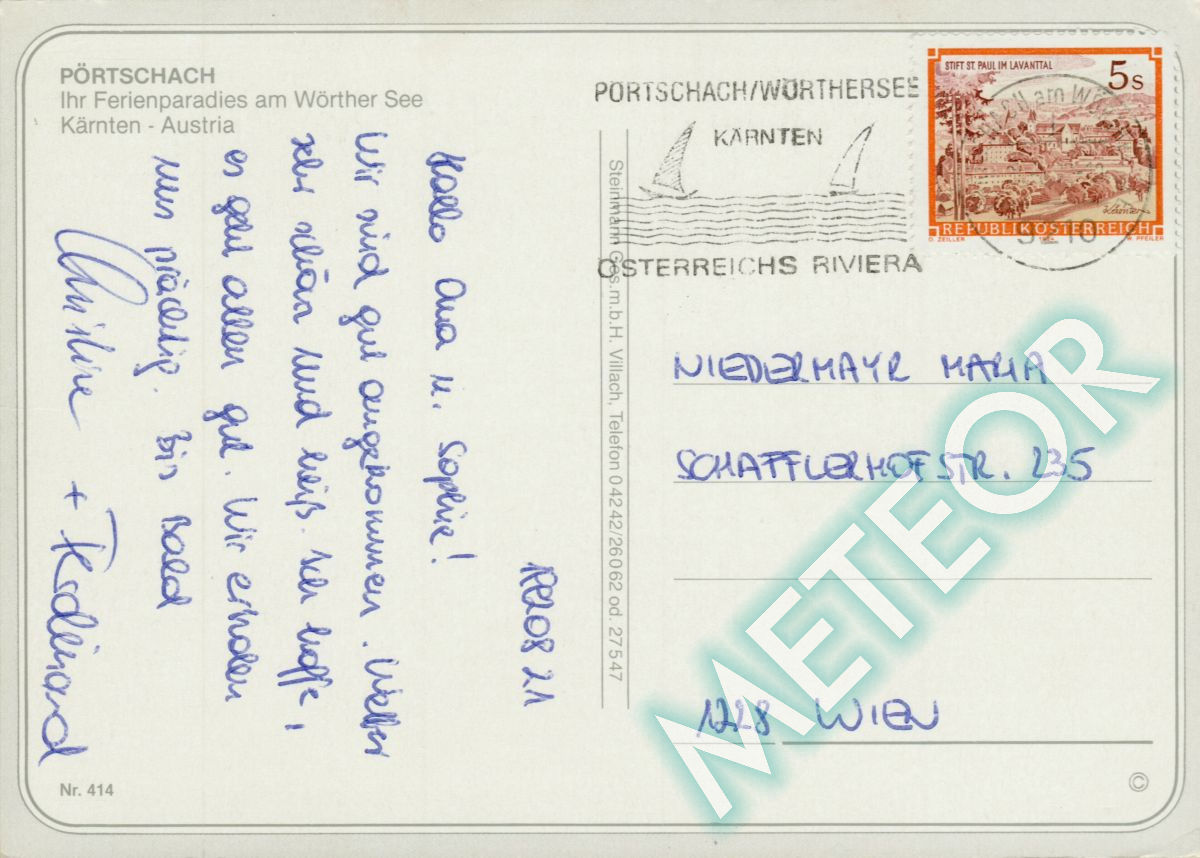 PÖRTSCHACH
Ihr Ferienparadies am Wörther See
Kärnten - Austria
PÖRTSCHACH/WÖRTHERSEE
KÄRNTEN
ÖSTERREICHS RIVIERA
STIFT ST. PAUL IM LAVANTTAL
5s
REPUBLIK ÖSTERREICH
O. ZEILLER
W. PFEILER
Steinmann Ges.m.b.H. Villach, Telefon 04242/26062 od. 27547
Hallo Ana u. Sophie!
Wir sind gut angekommen. Wetter
sehr schön und heiß. Ich hoffe,
es geht allen gut. Wir erholen
uns prächtig. Bis Bald
Christine + Ferdinand
NIEDERMAYR MARIA
SCHAFFLERHOFSTR. 235
1228 WIEN
METEOR
Nr. 414
©